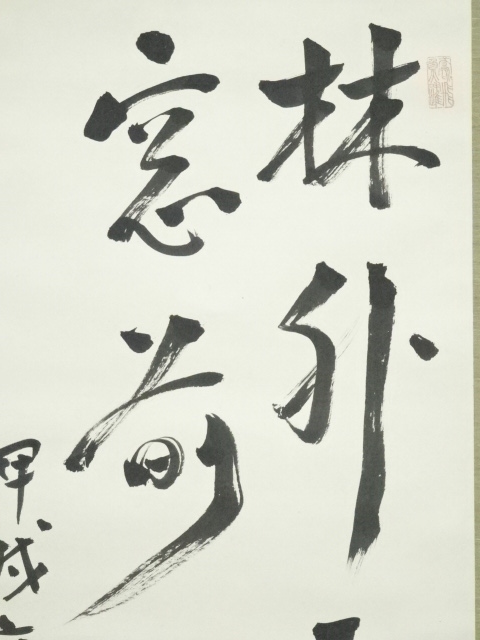 林外
窓前
甲戌